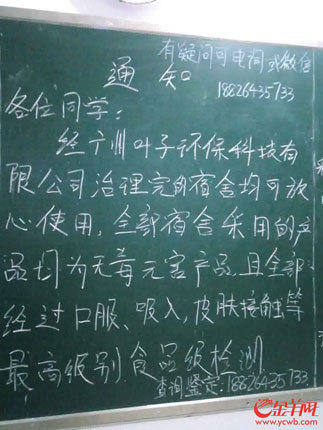 有疑问可电询或微信
18826435733
通 知
各位同学：
经广州叶子环保科技有
限公司治理完的宿舍均可放
心使用，全部宿舍采用的产
品均为无毒无害产品，且全部
经过口服、吸入，皮肤接触等
最高级别食品级检测
查询鉴定：18826435733
金羊网
www.ycwb.com